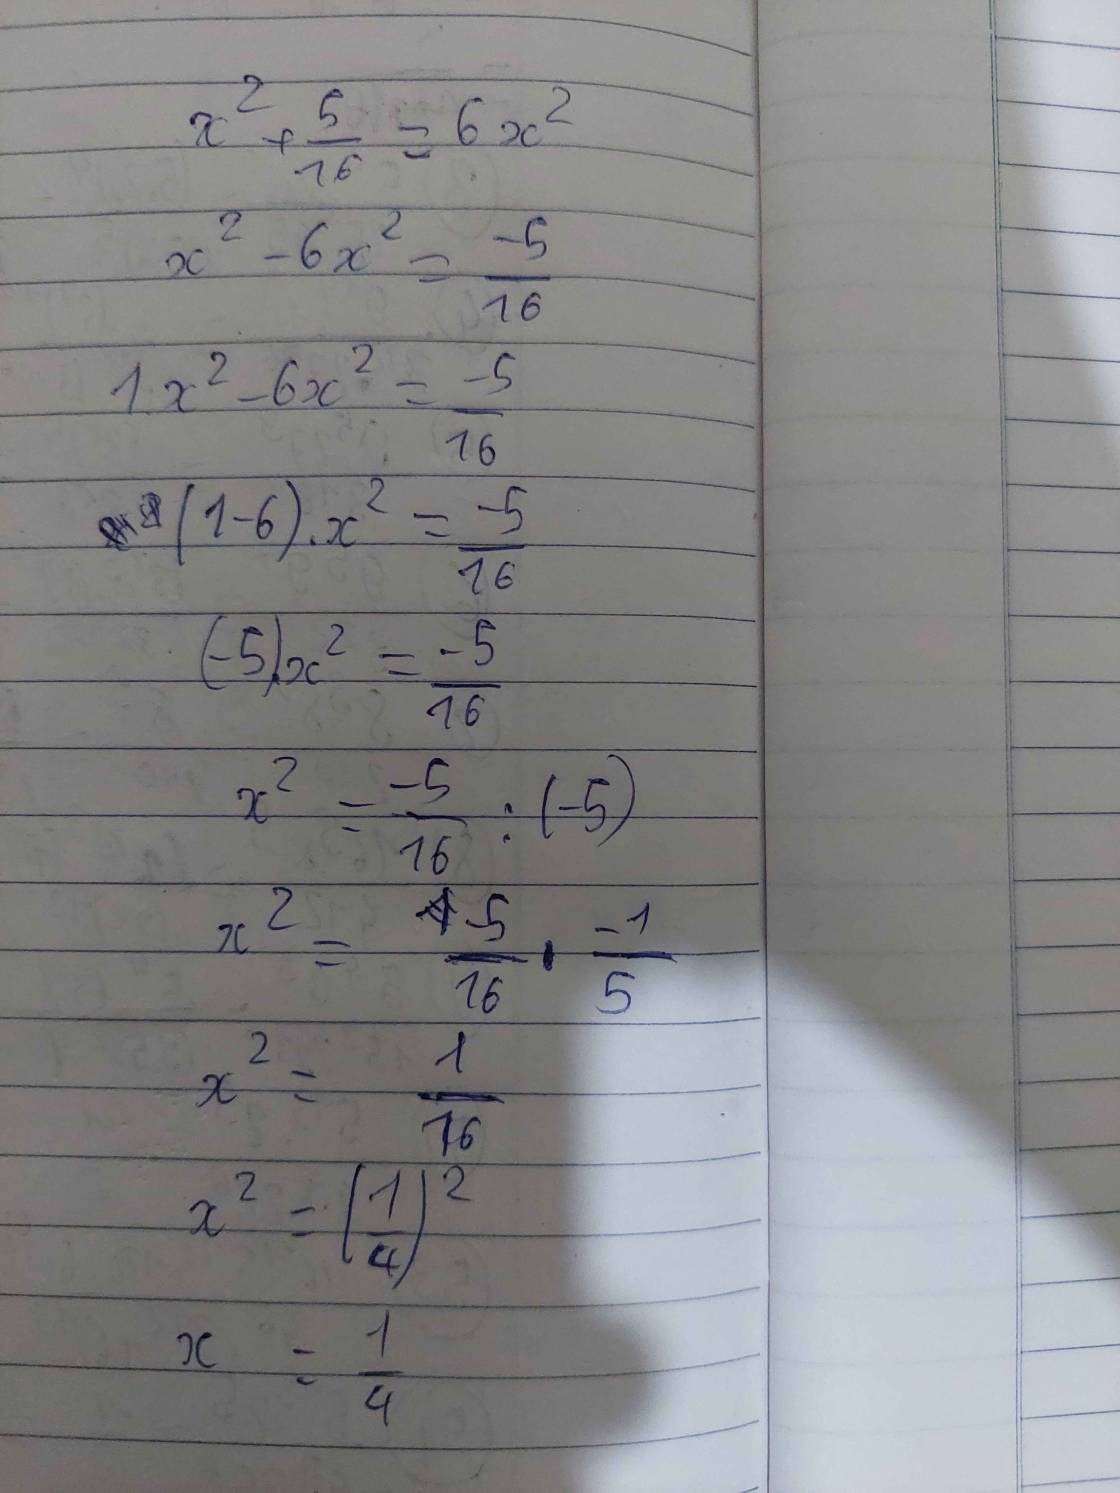 x² + 5/16 = 6x²
x² - 6x² = -5/16
1.x² - 6x² = -5/16
(1-6).x² = -5/16
(-5).x² = -5/16
x² = -5/16 : (-5)
x² = -5/16 . -1/5
x² = 1/16
x² = (1/4)²
x = 1/4